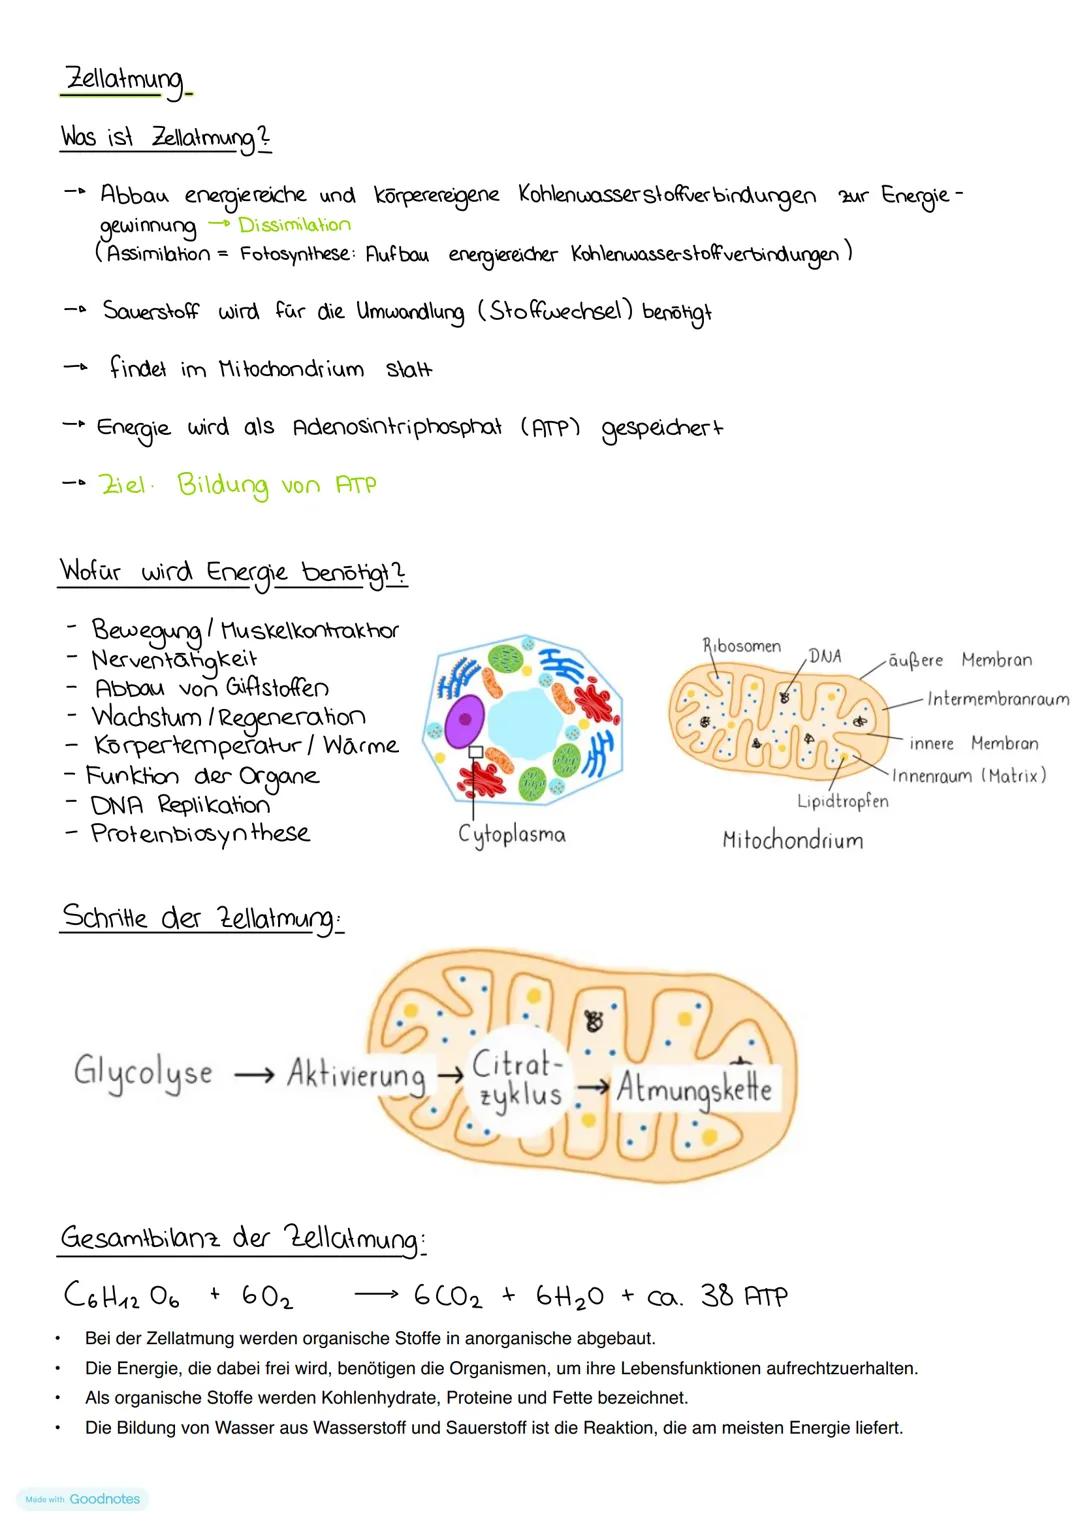 Zellatmung
Was ist Zellatmung?
→ Abbau energiereiche und körperereigene Kohlenwasserstoffverbindungen zur Energie-
gewinnung → Dissimilation
(Assimilation = Fotosynthese: Aufbau energiereicher Kohlenwasserstoffverbindungen)
→ Sauerstoff wird für die Umwandlung (Stoffwechsel) benötigt
→ findet im Mitochondrium statt
→ Energie wird als Adenosintriphosphat (ATP) gespeichert
→ Ziel: Bildung von ATP
Wofür wird Energie benötigt?
- Bewegung / Muskelkontraktion
- Nerventätigkeit
- Abbau von Giftstoffen
- Wachstum / Regeneration
- Körpertemperatur / Wärme
- Funktion der Organe
- DNA Replikation
- Proteinbiosynthese
Cytoplasma
Ribosomen
DNA
äußere Membran
Intermembranraum
innere Membran
Innenraum (Matrix)
Lipidtropfen
Mitochondrium
Schritte der Zellatmung:
Glycolyse → Aktivierung → Citrat-
zyklus → Atmungskette
Gesamtbilanz der Zellatmung:
C6H12O6 + 6O2 → 6CO2 + 6H2O + ca. 38 ATP
• Bei der Zellatmung werden organische Stoffe in anorganische abgebaut.
• Die Energie, die dabei frei wird, benötigen die Organismen, um ihre Lebensfunktionen aufrechtzuerhalten.
• Als organische Stoffe werden Kohlenhydrate, Proteine und Fette bezeichnet.
• Die Bildung von Wasser aus Wasserstoff und Sauerstoff ist die Reaktion, die am meisten Energie liefert.
Made with Goodnotes